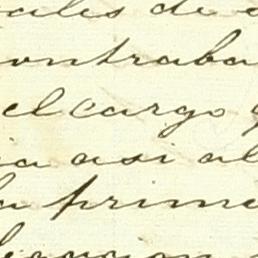 ales de
ontraba
el cargo
ia asi al
la prime